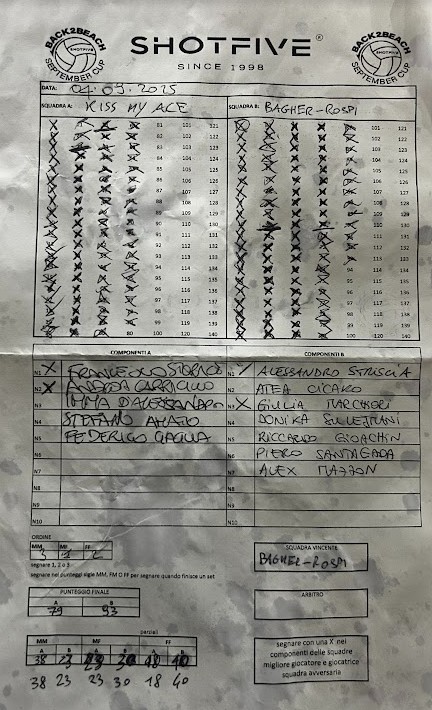 BACK2BEACH SHOTFIVE SEPTEMBER CUP
SHOTFIVE®
SINCE 1998
BACK2BEACH SHOTFIVE SEPTEMBER CUP
DATA: 04.09.2025
SQUADRA A: KISS MY ACE SQUADRA B: BAGHER-ROSPI
81 101 121 101 121
82 102 122 102 122
83 103 123 103 123
84 104 124 104 124
85 105 125 105 125
86 106 126 106 126
87 107 127 107 127
88 108 128 108 128
89 109 129 109 129
90 110 130 110 130
91 111 131 111 131
92 112 132 112 132
93 113 133 113 133
94 114 134 94 114 134
95 115 135 95 115 135
96 116 136 96 116 136
97 117 137 97 117 137
98 118 138 98 118 138
99 119 139 99 119 139
80 100 120 140 100 120 140
COMPONENTI A COMPONENTI B
N1 X FRANCESCO N1 ALESSANDRO STRISCIA
N2 X ANDREA N2 ATEA CICAKO
N3 IMMA D'ALESSANDRO N3 X GIULIA MARCHIORI
N4 STEFANO AMATO N4 DONIKA
N5 FEDERICO N5 RICCARDO GIOACHIN
N6 N6 PIERO SANTAGADA
N7 N7 ALEX MAZZON
N8 N8
N9 N9
N10 N10
ORDINE
MM MF FF
segnare 1, 2 o 3
segnare nei punteggi sigle MM, FM O FF per segnare quando finisce un set
SQUADRA VINCENTE
BAGHER-ROSPI
PUNTEGGIO FINALE
A B
79 93
ARBITRO
parziali
MM MF FF
A B A B A B
38 23 23 30 18 40
38 23 23 30 18 40
segnare con una X nei
componenti delle squadre
migliore giocatore e giocatrice
squadra avversaria